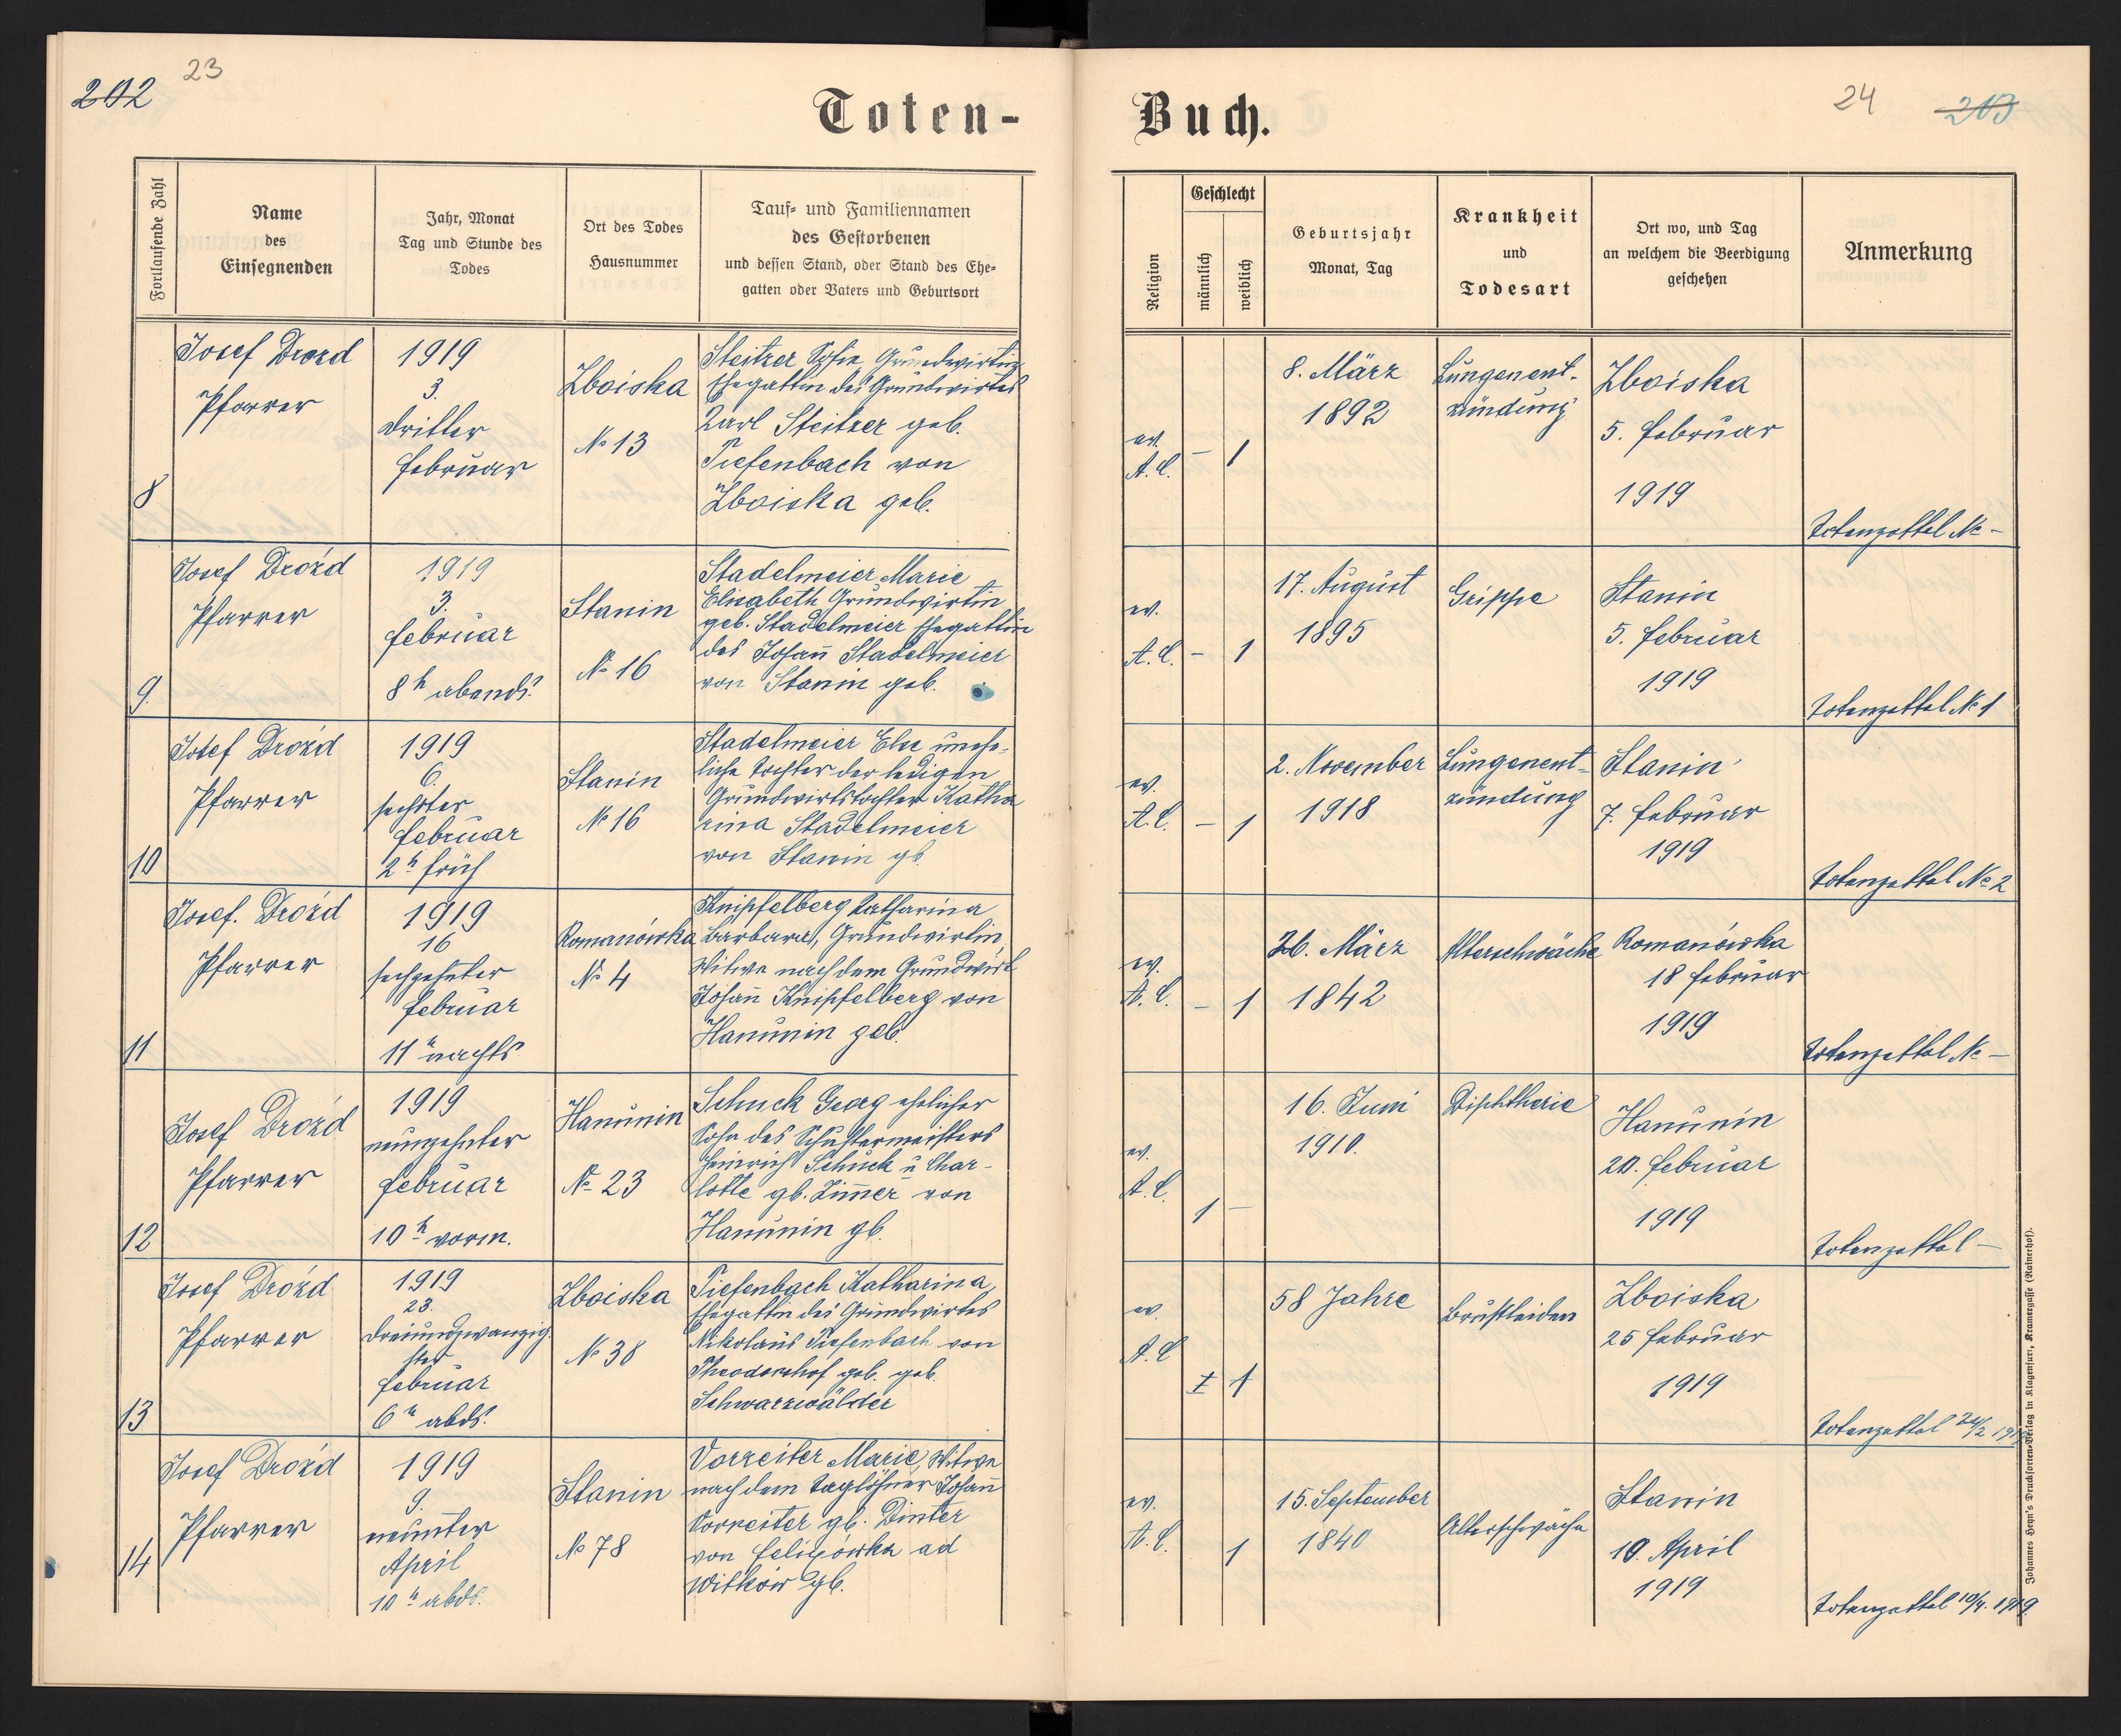 202 23
Toten-
Fortlaufende Zahl
Name
des
Einsegnenden
Jahr, Monat
Tag und Stunde des
Todes
Ort des Todes
Hausnummer
Tauf- und Familiennamen
des Gestorbenen
und dessen Stand, oder Stand des Ehe-
gatten oder Vaters und Geburtsort
8
Josef Drozd
Pfarrer
1919
3.
dritter
Februar
Zboiska
№ 13
Steitzer Sofie Grundwirtin
Ehegattin des Grundwirtes
Karl Steitzer geb.
Tiefenbach von
Zboiska geb.
9.
Josef Drożd
Pfarrer
1919
3.
Februar
8h abends.
Stanin
№ 16
Stadelmeier Marie
Elisabeth Grundwirtin
geb. Stadelmeier Ehegattin
des Johañ Stadelmeier
von Stanin geb.
10
Josef Drożd
Pfarrer
1919
6.
sechster
Februar
2h früh
Stanin
№ 16
Stadelmeier Else unehe-
liche Tochter der ledigen
Grundwirtstochter Katha
rina Stadelmeier
von Stanin gb.
11
Josef. Drożd
Pfarrer
1919
16
sechzehnter
Februar
11h nachts
Romanówka
№ 4
Knipfelberg Katharina
Barbara, Grundwirtin,
Witwe nach dem Grundwirt
Johañ Knipfelberg von
Hanunin geb.
12
Josef Drożd
Pfarrer
1919
neunzehnter
Februar
10h vorm.
Hanunin
№ 23
Schuck Georg ehelicher
Sohn des Schustermeisters
Heinrich Schuck u Char-
lotte gb. Zim̄er von
Hanunin gb.
13
Josef Drożd
Pfarrer
1919
23.
dreiundzwanzig-
ster
Februar
6h abds.
Zboiska
№ 38
Tiefenbach Katharina,
Ehegattin des Grundwirtes
Nikolaus Tiefenbach von
Theodorshof geb. geb.
Schwarzwälder
14
Josef Drożd
Pfarrer
1919
9.
neunter
April
10h abds.
Stanin
№ 78
Vorreiter Marie, Witwe
nach dem Taglöhner Johañ
Vorreiter gb. Dinter
von Felizówka ad
Witków gb.
Buch.
24 203
Religion
Geschlecht
männlich
weiblich
Geburtsjahr
Monat, Tag
Krankheit
und
Todesart
Ort wo, und Tag
an welchem die Beerdigung
geschehen
Anmerkung
ev.
A.C.
– 1
8. März
1892
Lungenent-
zündung
Zboiska
5. Februar
1919
Totenzettel № –
ev.
A.C.
– 1
17. August
1895
Grippe
Stanin
5. Februar
1919
Totenzettel № 1
ev.
A.C.
– 1
2. November
1918
Lungenent-
zündung
Stanin
7. Februar
1919
Totenzettel № 2
ev.
A.C.
– 1
26. März
1842
Alterschwäche
Romanówka
18 Februar
1919
Totenzettel № –
ev.
A.C.
1 –
16. Juni
1910.
Diphtherie
Hanunin
20. Februar
1919
Totenzettel –
ev.
A.C
1
58 Jahre
Brustleiden
Zboiska
25 Februar
1919
Totenzettel 24/2 1919
ev.
A.C.
1
15. September
1840
Alterschwäche
Stanin
10. April
1919
Totenzettel 10/4. 1919.
Johannes Heyn's Drucksorten-Verlag in Klagenfurt, Kramergasse (Rainerhof).